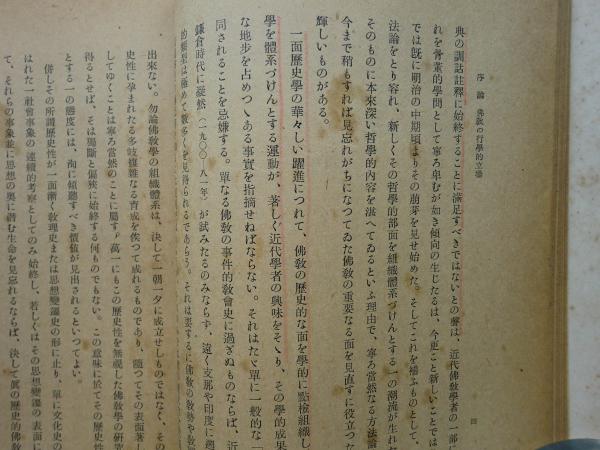 序論 佛敎の哲學的立場
四
典の訓詁註釋に始終することに滿足すべきではないとの聲は、近代佛敎學者の一部に
れを骨董的學問として寧ろ卑むが如き傾向の生じたるは、今更こと新しいことでは
では旣に明治の中期頃よりその萌芽を見せ始めた。そしてこれを補ふものとして、
法論をとり容れ、新しくその哲學的部面を組織體系づけんとする一の潮流が生れ
そのものに本來深い哲學的內容を湛へてゐるといふ理由で、寧ろ當然なる方法論
今まで稍もすれば見忘れがちになつてゐた佛敎の重要なる面を見直すに役立つた
輝しいものがある。
一面歷史學の華々しい躍進につれて、佛敎の歷史的な面を學的に點檢組織し
學を體系づけんとする運動が、著しく近代學者の興味をそゝり、その學的成果
な地步を占めつゝある事實を指摘せねばならない。それはたゞ單に一般的な「
同されることを忌嫌する。單なる佛敎の事件的敎會史に過ぎぬものならば、近
鎌倉時代に凝然(一九〇〇ー八一年)が試みたるのみならず、遠く支那や印度に遡
的類型は極めて數多くを見得られるであらう。それは要するに佛敎の敎勢や敎
出來ない。勿論佛敎學の組織體系は、決して一朝一夕に成立せしものではなく、その
史性に孕まれたる多岐複雜なる育成を俟つて成れるものであり、隨つてその表面著し
してゆくことは寧ろ當然のことに屬す。萬一にもこの歷史性を無視した佛敎學の硏究
得るとせば、そは獨斷と偏狹に始終する何ものでもない。この意味に於てその歷史性
とする一の態度には、洵に傾聽すべき價値が見出されるといつてよい。
併しその所謂歷史性が一面漸く敎理史または思想變遷史の形に止り、單に文化史の
はれた一社會事象の連續的考察としてのみ始終し、若しくはその思想變遷の表面に
て、それらの事象並に思想の奧に潛む生命を見忘れるならば、決して眞の歷史的佛敎